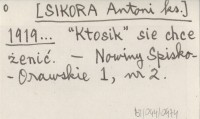 [SIKORA Antoni ks.]
1919... "Ktosik" sie chce
żenić. — Nowiny Spisko-
-Orawskie 1, nr 2.